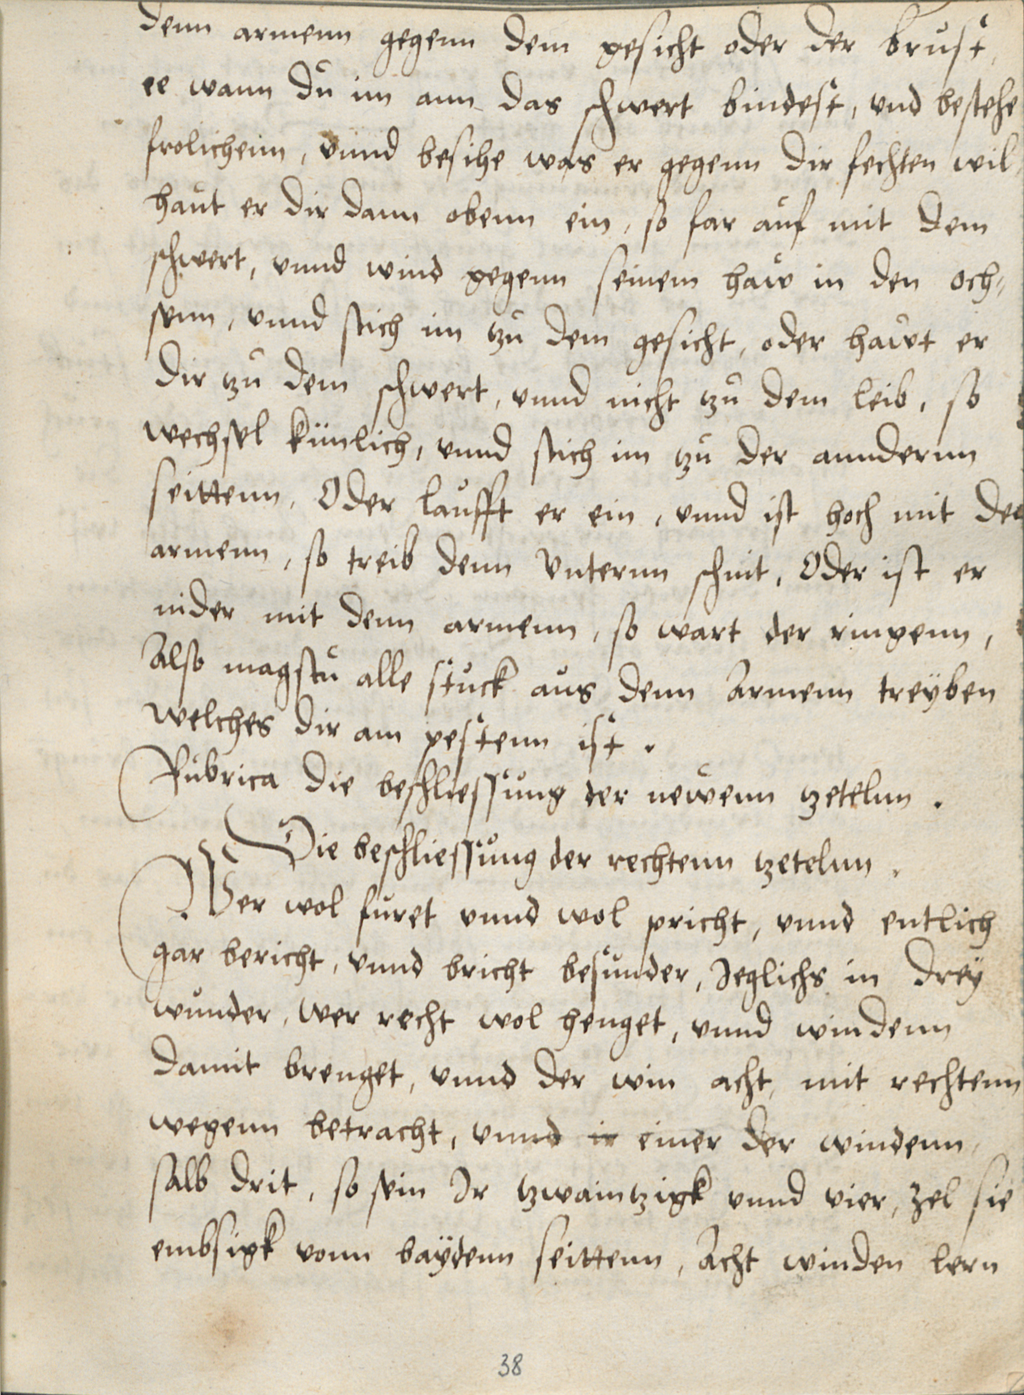 denn armenn gegenn dem gesicht oder der brust,
ee wann du im ann das schwert bindest, vnd bestehe
frolichenn, vnnd besihe was er gegenn dir fechten wil,
haut er dir dann obenn ein, so far auf mit dem
schwert, vnnd wind gegenn seinem haw in den och-
senn, vnnd stich im tzu dem gesicht, oder hawt er
dir tzu dem schwert, vnnd nicht tzu dem leib, so
wechsel künlich, vnnd stich im tzu der anndernn
seittenn, Oder laufft er ein, vnnd ist hoch mit den
armenn, so treib denn Vnternn schnit, Oder ist er
nider mit denn armenn, so wart der ringenn,
Also magstu alle stuck aus denn Armenn treyben
welches dir am pestenn ist.
Rubrica die beschliessung der newenn tzetelnn.
Die beschliessung der rechtenn tzetelnn.
Wer wol furet vnnd wol pricht, vnnd entlich
gar bericht, vnnd bricht besunder, Jeglichs in drey
wunder, wer recht wol henget, vnnd windenn
damit brenget, vnnd der win acht, mit rechtenn
wegenn betracht, vnnd ir einer der windenn,
salb drit, so sein Jr tzwaintzigk vnnd vier, zel sie
embsigk vonn baydenn seittenn, Acht winden lern
38